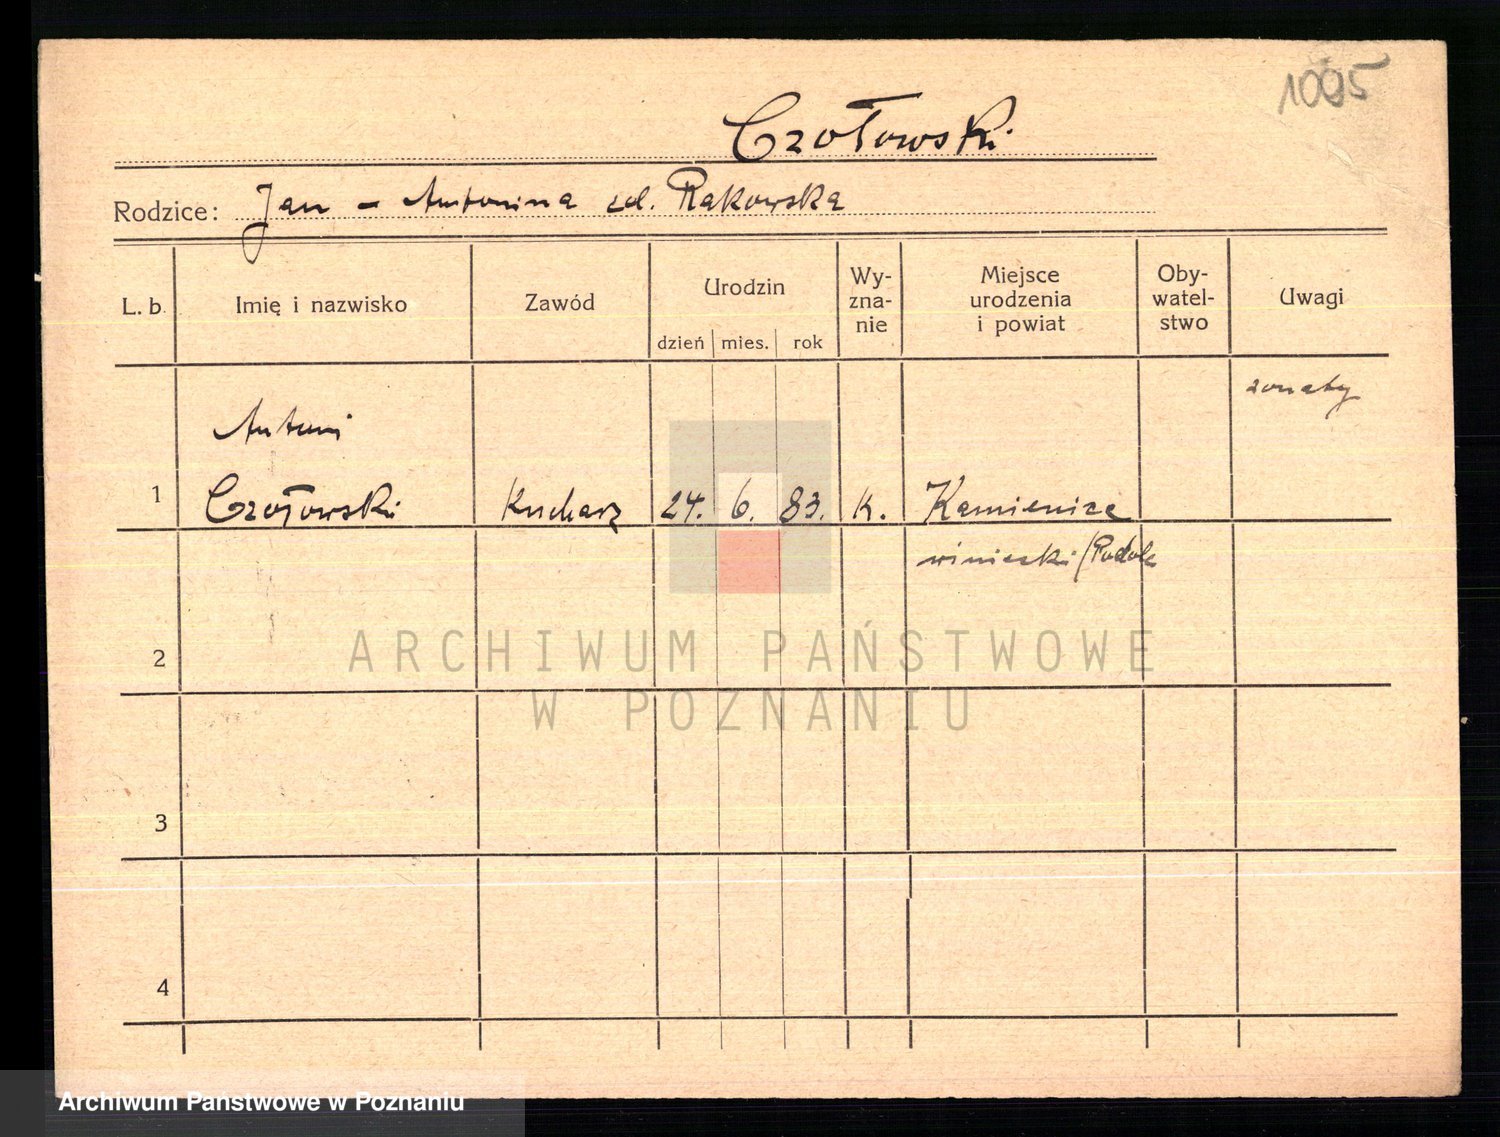 1095
Czołowski
Rodzice: Jan - Antonina zd. Rakowska
L. b. Imię i nazwisko Zawód Urodzin dzień mies. rok Wyznanie Miejsce urodzenia i powiat Obywatelstwo Uwagi
żonaty
Antoni
1 Czołowski Kucharz 24. 6. 83. k. Kamienica
winiecki/Podole
2
3
4
ARCHIWUM PAŃSTWOWE
W POZNANIU
Archiwum Państwowe w Poznaniu